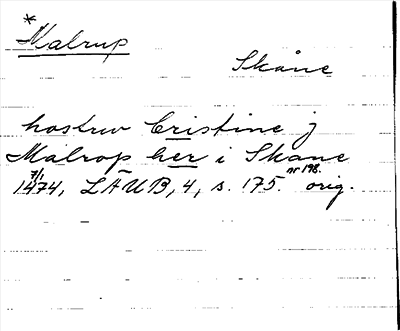 *
Malrup
Skåne
hostrv Cristine j
Malrop her i Skane
7/1
1474, LÄUB, 4, s. 175. nr 198. orig.